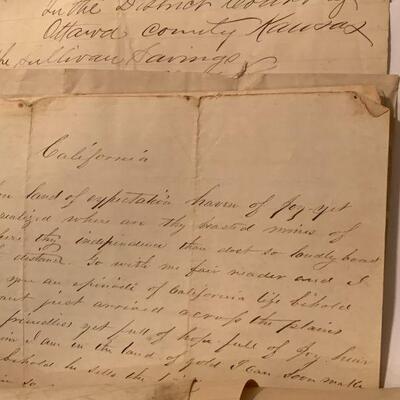 In the District Court of
Ottawa county Kansas
Sullivan Savings
California
land of expectation haven of Joy yet
where are thy boasted mines of
thy independence thou dost so loudly boast
distance. Go with me fair reader and I
you an episode of California life behold
just arrived across the plains
penniless yet full of hope full of Joy hear
I am in the land of gold I can soon make
behold he sells the